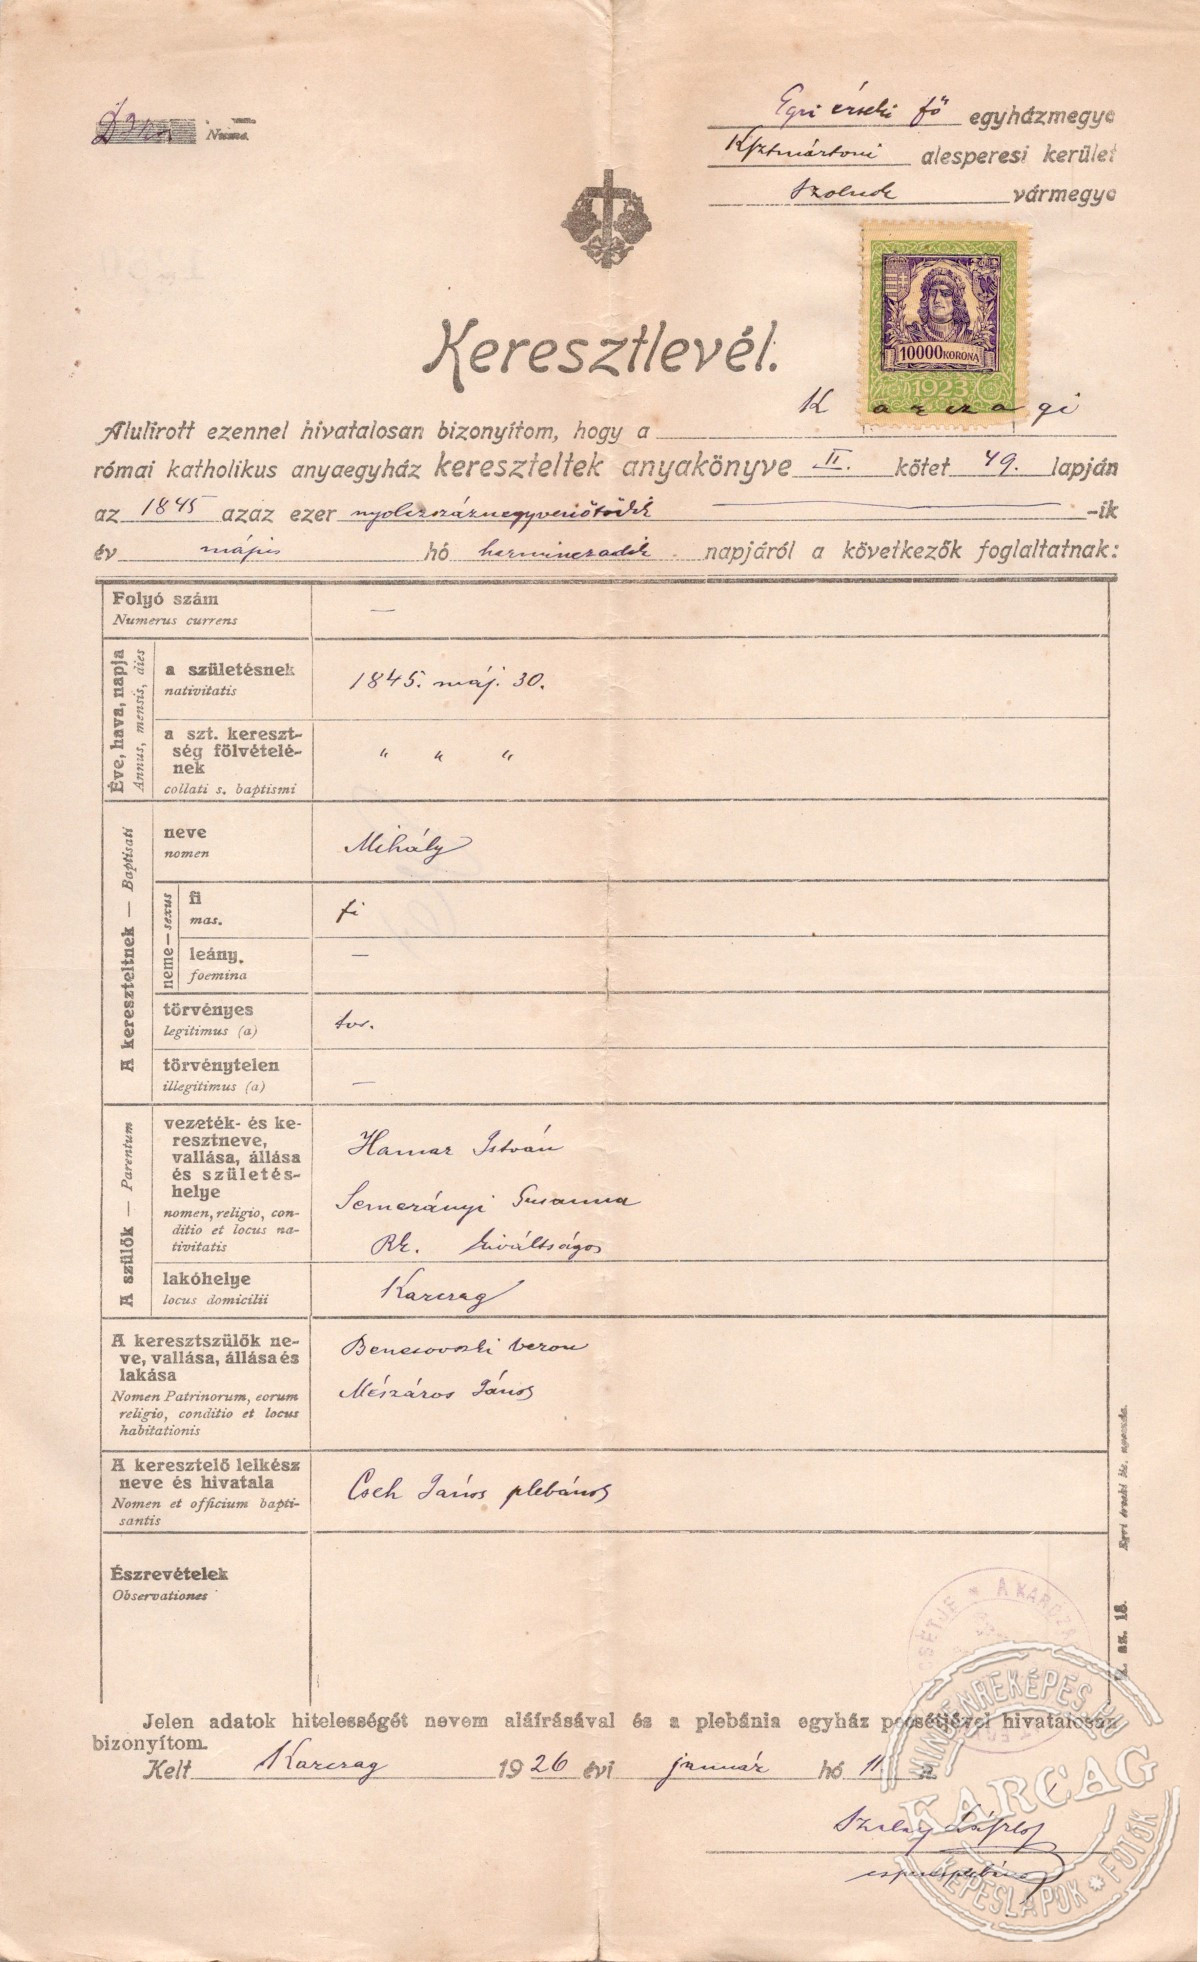 Num.
Egri érseki fő egyházmegye
Kisztmártoni alesperesi kerület
Szolnok vármegye
10000 KORONA
1923
Keresztlevél.
Alulirott ezennel hivatalosan bizonyítom, hogy a Karczagi
római katholikus anyaegyház kereszteltek anyakönyve II. kötet 49. lapján
az 1845 azaz ezer nyolczszáznegyvenötödik -ik
év május hó harminczadik napjáról a következők foglaltatnak:
Folyó szám
Numerus currens
—
Éve, hava, napja
Annus, mensis, dies
a születésnek
nativitatis
1845. máj. 30.
a szt. kereszt-
ség fölvételé-
nek
collati s. baptismi
" " "
A kereszteltnek — Baptisati
neve
nomen
Mihály
neme — sexus
fi
mas.
fi
leány.
foemina
—
törvényes
legitimus (a)
tör.
törvénytelen
illegitimus (a)
—
A szülők — Parentum
vezeték- és ke-
resztneve,
vallása, állása
és születés-
helye
nomen, religio, con-
ditio et locus na-
tivitatis
Hamar István
Semerányi Susanna
Rk. kiváltságos
lakóhelye
locus domicilii
Karczag
A keresztszülők ne-
ve, vallása, állása és
lakása
Nomen Patrinorum, eorum
religio, conditio et locus
habitationis
Bencsovszki Veron
Mészáros János
A keresztelő lelkész
neve és hivatala
Nomen et officium bapti-
santis
Cseh János plebános
Észrevételek
Observationes
Egri érseki lic. nyomda.
R. sz. 18.
Jelen adatok hitelességét nevem aláírásával és a plebánia egyház pecsétjével hivatalosan
bizonyítom.
Kelt Karczag 1926 évi január hó 11 n
Szalay László
esperesplébános
MINDENREKÉPES.HU
KARCAG
KÉPESLAPOK * FOTÓK